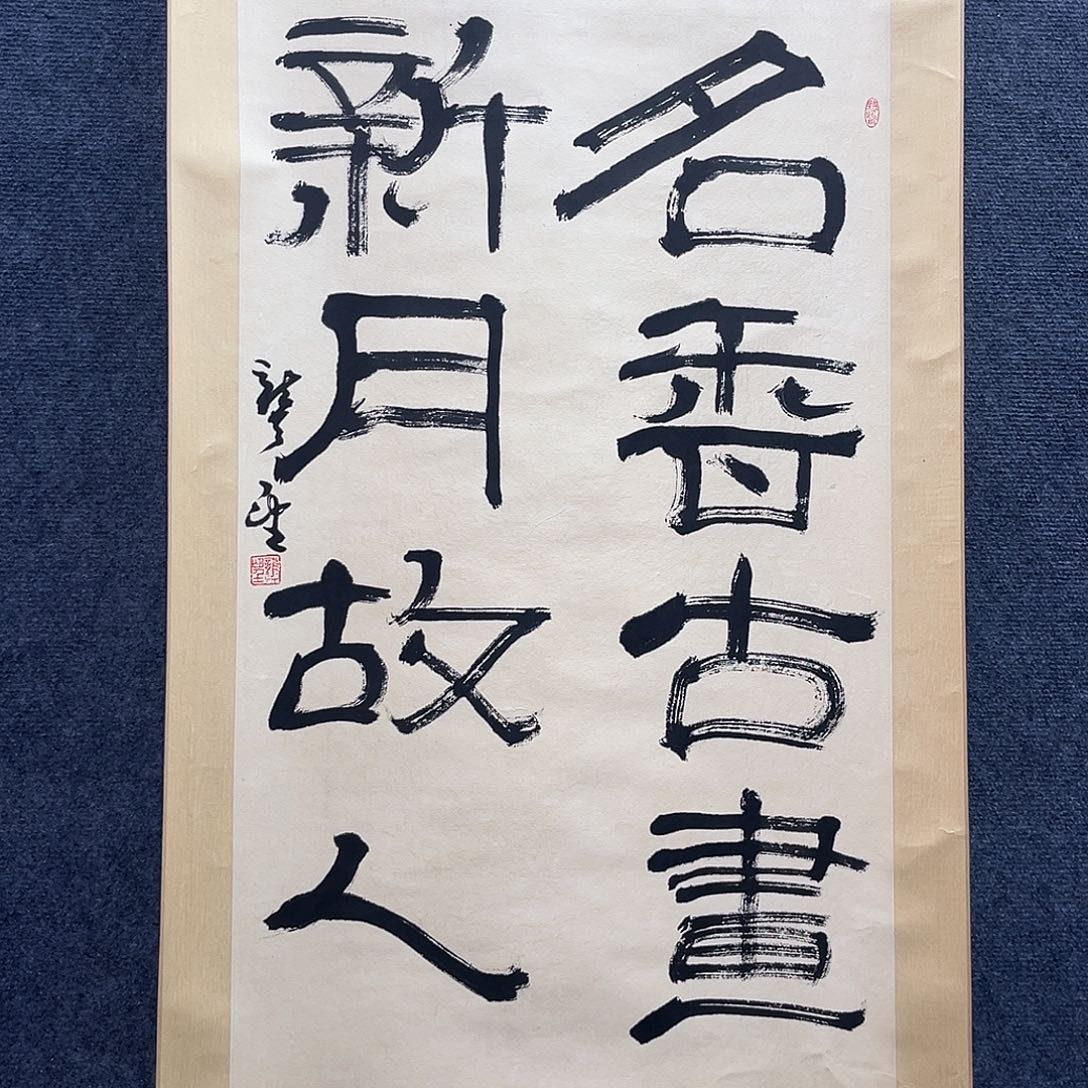 名香古畫
新月故人